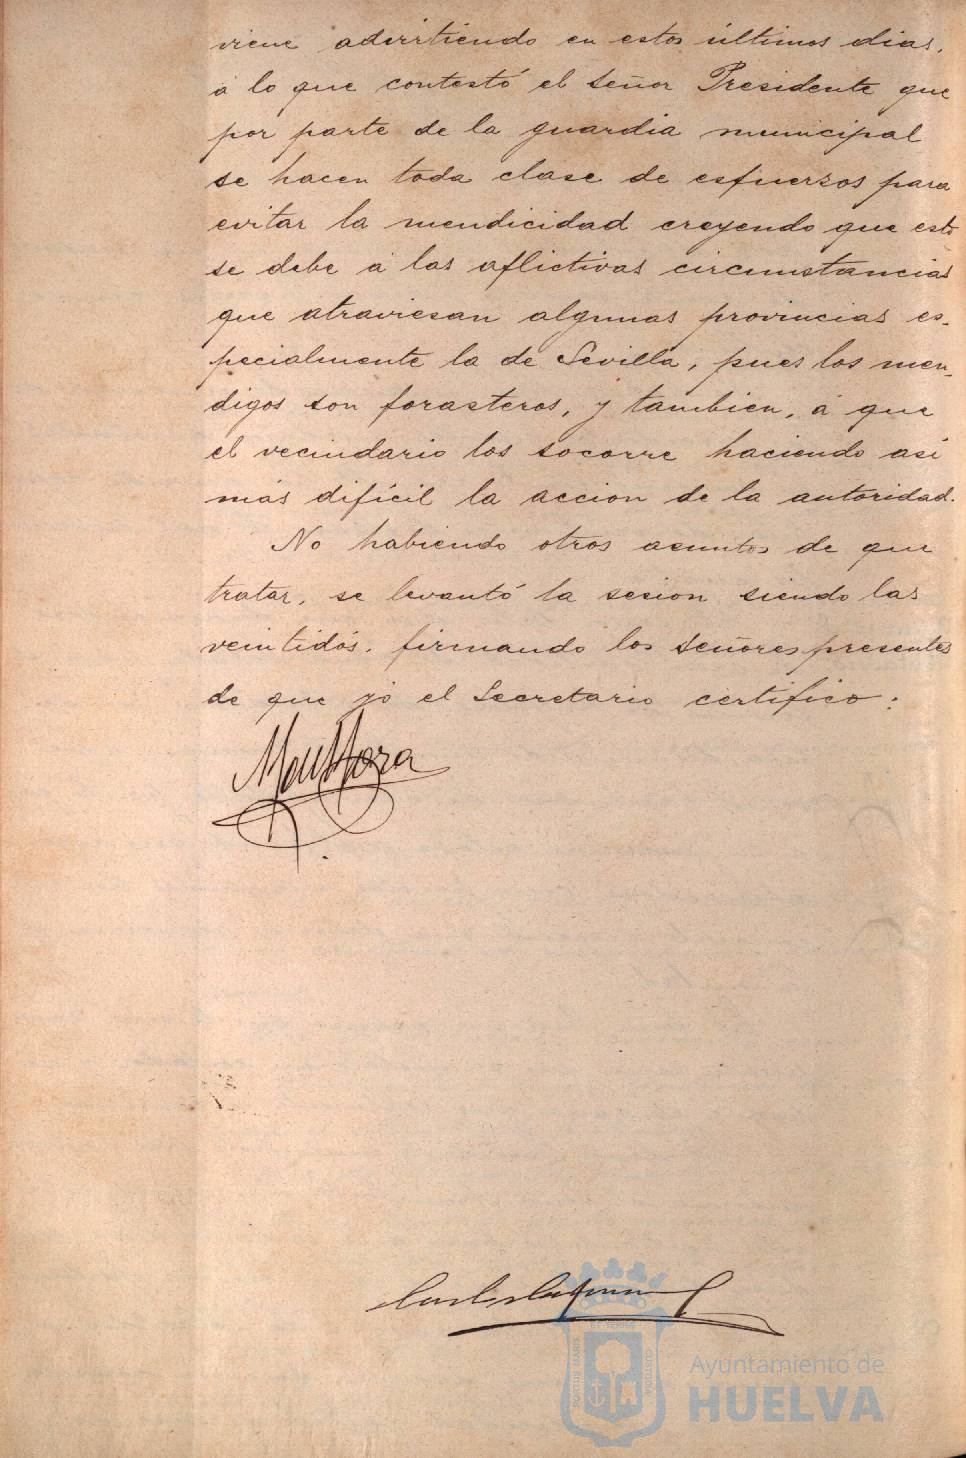 viene advirtiendo en estos últimos dias,
á lo que contestó el señor Presidente que
por parte de la guardia municipal
se hacen toda clase de esfuerzos para
evitar la mendicidad creyendo que esto
se debe á las aflictivas circunstancias
que atraviesan algunas provincias es-
pecialmente la de Sevilla, pues los men-
digos son forasteros, y tambien, á que
el vecindario los socorre haciendo así
más difícil la accion de la autoridad.
No habiendo otros asuntos de que
tratar, se levantó la sesion siendo las
veintidós, firmando los señores presentes
de que yo el Secretario certifico:
PORTUS MARIS
ET TERRAE
CUSTODIA
Ayuntamiento de
HUELVA